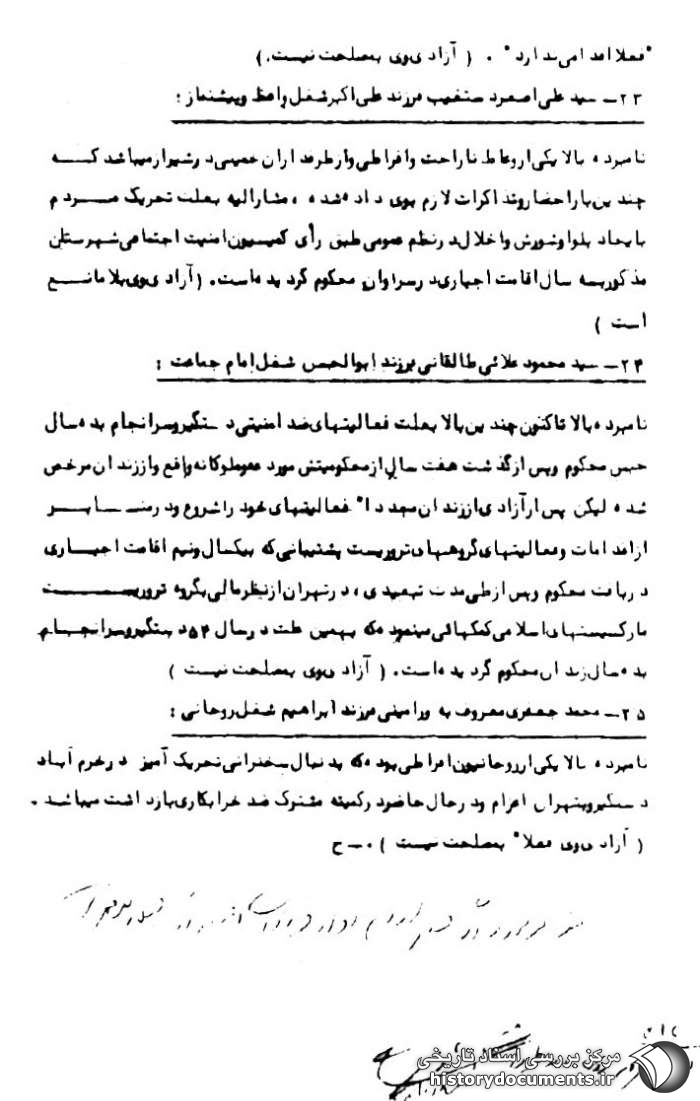 فعلا اقدامی ندارد" . ( آزادی وی بمصلحت نیست.)
۲۳ـ سید علی اصغر دستغیب فرزند علی اکبر شغل واعظ و پیشنماز :
نامبرده بالا یکی از وعاظ ناراحت و افراطی و از طرفداران خمینی در شیراز میباشد که
چندین بار احضار و تذاکرات لازم بوی داده شده ، مشارالیه بعلت تحریک مردم
با یجاد بلوا و شورش و اخلال در نظم عمومی طبق رأی کمیسیون امنیت اجتماعی شهرستان
مذکور بسه سال اقامت اجباری در سراوان محکوم گردیده است. (آزادی وی بلامانع
است )
۲۴ـ سید محمود علائی طالقانی فرزند ابوالحسن شغل امام جماعت :
نامبرده بالا تاکنون چندین بار بعلت فعالیتهای ضد امنیتی دستگیر و سرانجام بده سال
حبس محکوم و پس از گذشت هفت سال از محکومیتش مورد عفو ملوکانه واقع و از زندان مرخص
شده لیکن پس از آزادی از زندان مجددا" فعالیتهای خود را شروع و در سایر
اقدامات و فعالیتهای گروههای تروریست پشتیبانی که بیکسال ونیم اقامت اجباری
در بافت محکوم و پس از طی مدت تبعیدی ، در تهران از نظر مالی بگروه تروریست
مارکسیستهای اسلامی کمکهائی مینمود که بهمین علت در سال ۵۴ دستگیر و سرانجام
بده سال زندان محکوم گردیده است. ( آزادی وی بمصلحت نیست )
۲۵ـ محمد جعفری معروف به ورامینی فرزند ابراهیم شغل روحانی :
نامبرده بالا یکی از روحانیون افراطی بوده که بدنبال سخنرانی تحریک آمیز در خرم آباد
دستگیر و بتهران اعزام و در حال حاضر در کمیته مشترک ضد خرابکاری بازداشت میباشد .
( آزادی وی فعلا" بمصلحت نیست ) ۰ـ ح
مرکز بررسی اسناد تاریخی
historydocuments.ir